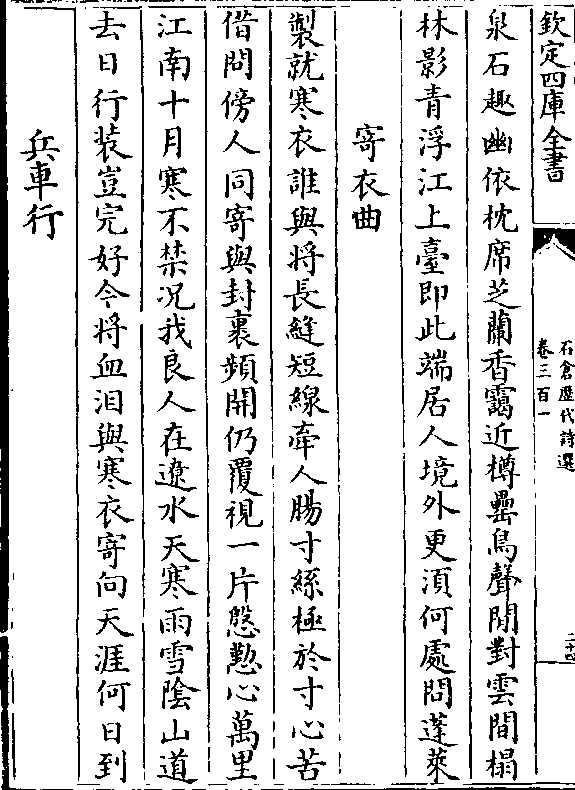 欽定四庫全書
石倉歷代詩選
卷三百一
二十四
泉石趣幽依枕席芝蘭香靄近樽罍鳥聲閒對雲間榻
林影青浮江上臺即此端居人境外更湏何處問蓬萊
寄衣曲
製就寒衣誰與將長縫短線牽人腸寸絲極於寸心苦
借問傍人同寄與封裹頻開仍覆視一片慇懃心萬里
江南十月寒不禁况我良人在遼水天寒雨雪陰山道
去日行裝豈完好今將血淚與寒衣寄向天涯何日到
兵車行